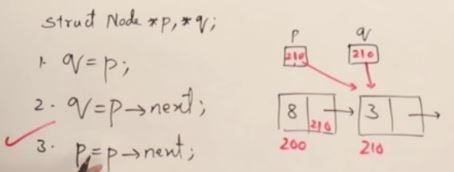 struct Node *p,*q;
1. q=p;
2. q=p→next;
3. p=p→next;
p q
210 210
8 210 3
200 210